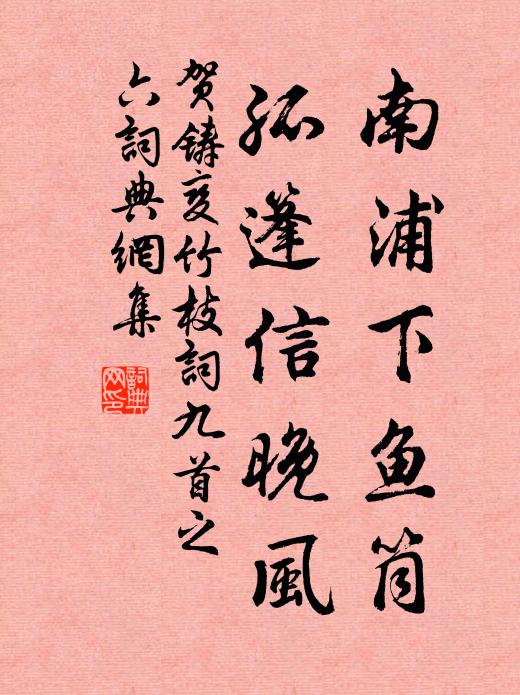 南浦下鱼筒
孤蓬信晚風
贺鑄变竹枝詞九首之
六詞典網集
詞典
网印